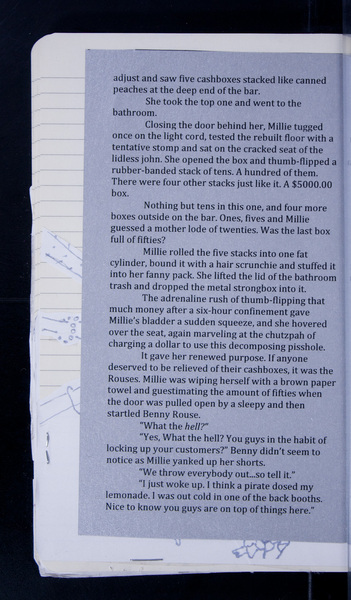 adjust and saw five cashboxes stacked like canned
peaches at the deep end of the bar.
She took the top one and went to the
bathroom.
Closing the door behind her, Millie tugged
once on the light cord, tested the rebuilt floor with a
tentative stomp and sat on the cracked seat of the
lidless john. She opened the box and thumb-flipped a
rubber-banded stack of tens. A hundred of them.
There were four other stacks just like it. A $5000.00
box.
Nothing but tens in this one, and four more
boxes outside on the bar. Ones, fives and Millie
guessed a mother lode of twenties. Was the last box
full of fifties?
Millie rolled the five stacks into one fat
cylinder, bound it with a hair scrunchie and stuffed it
into her fanny pack. She lifted the lid of the bathroom
trash and dropped the metal strongbox into it.
The adrenaline rush of thumb-flipping that
much money after a six-hour confinement gave
Millie's bladder a sudden squeeze, and she hovered
over the seat, again marveling at the chutzpah of
charging a dollar to use this decomposing pisshole.
It gave her renewed purpose. If anyone
deserved to be relieved of their cashboxes, it was the
Rouses. Millie was wiping herself with a brown paper
towel and guestimating the amount of fifties when
the door was pulled open by a sleepy and then
startled Benny Rouse.
"What the hell?"
"Yes, What the hell? You guys in the habit of
locking up your customers?" Benny didn't seem to
notice as Millie yanked up her shorts.
"We throw everybody out...so tell it."
"I just woke up. I think a pirate dosed my
lemonade. I was out cold in one of the back booths.
Nice to know you guys are on top of things here."